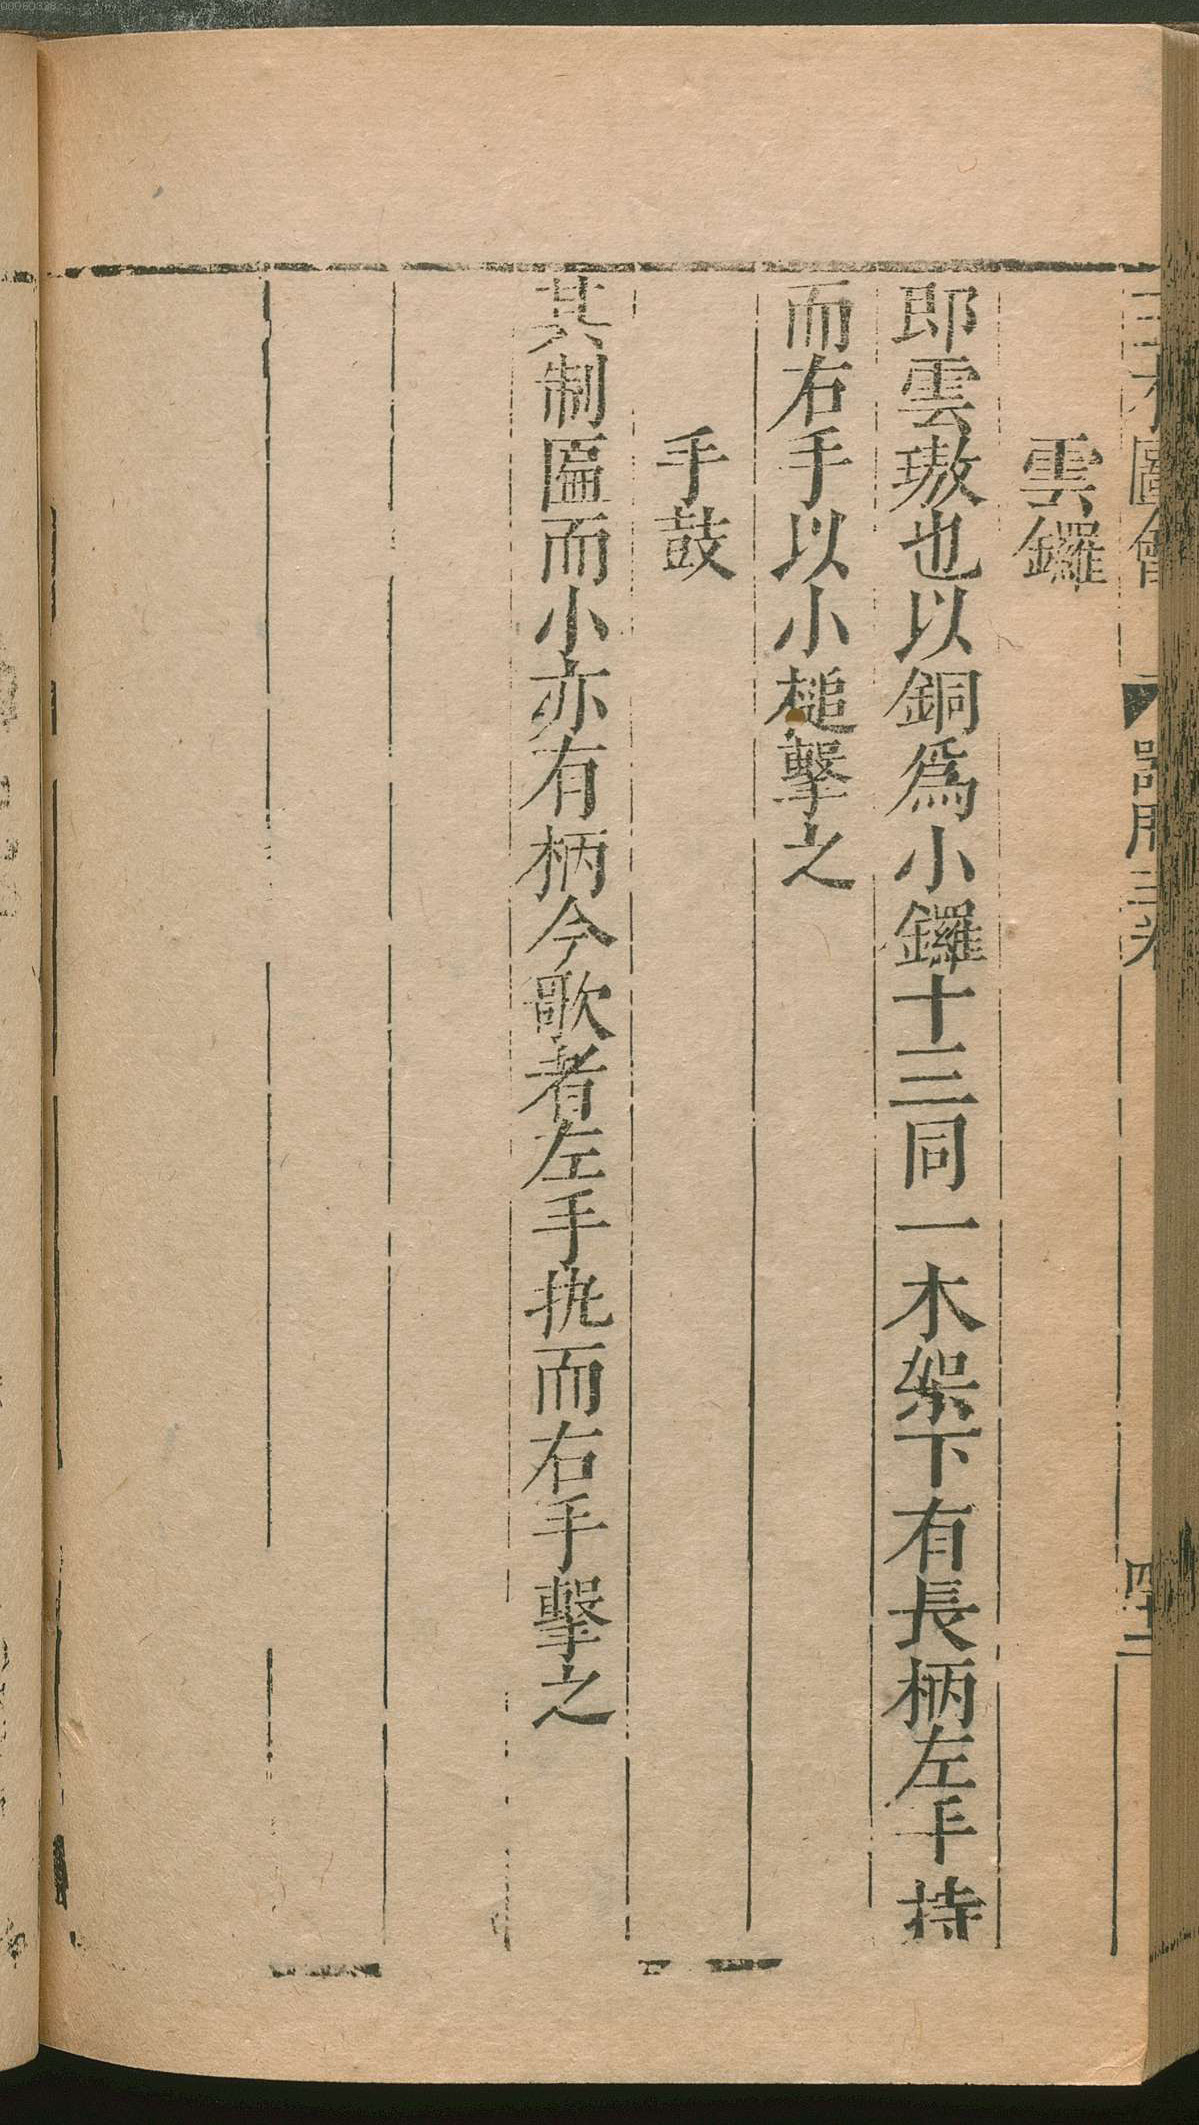 三才圖會 器用三卷 四十二
雲鑼
即雲璈也以銅爲小鑼十三同一木架下有長柄左手持
而右手以小槌擊之
手鼓
其制匾而小亦有柄今歌者左手执而右手擊之
00060328